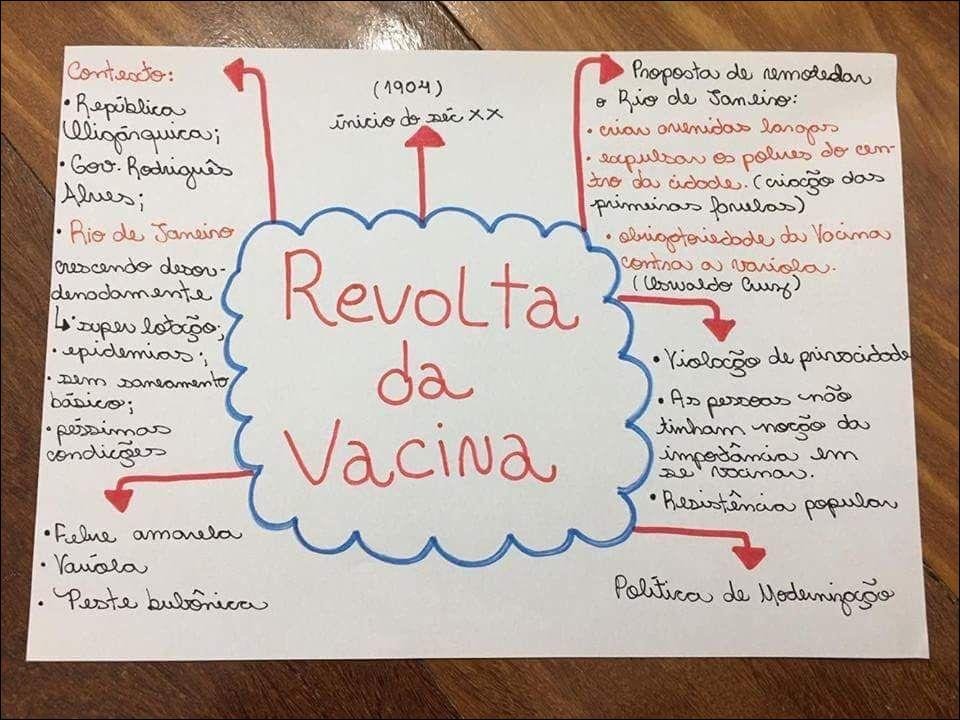 Contexto:
• República
Oligárquica;
• Gov. Rodriguês
Alves;
• Rio de Janeiro
crescendo desor-
denadamente
↳ • super lotação;
• epidemias;
• sem saneamento
básico;
• péssimas
condições
• Febre amarela
• Varíola
• Peste bubônica
(1904)
início do séc XX
Revolta
da
Vacina
Proposta de remodelar
o Rio de Janeiro:
• criar avenidas largas
• expulsar os pobres do cen-
tro da cidade. (criação das
primeiras favelas)
• obrigatoriedade da Vacina
contra a varíola.
(Oswaldo Cruz)
• Violação de privacidade
• As pessoas não
tinham noção da
importância em
se vacinar.
• Resistência popular
Política de Modernização